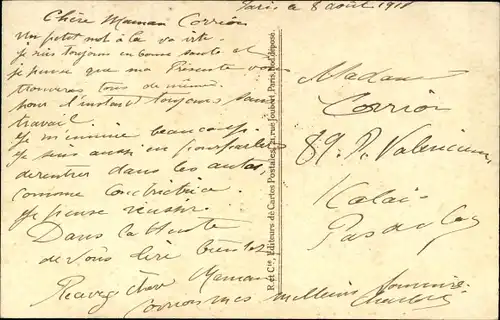 Paris le 8 août 1918
Chère Maman Corrion
Un petit mot à la va vite
je suis toujours en bonne santé et
je pense que ma Présente vous
trouvera tous de même.
pour l'instant toujours sans
travail.
Je m'ennuie beaucoup.
Je suis aussi en pourparlers
de rentrer dans les autos,
comme conductrice.
Je pense réussir.
Dans la
de vous lire bientôt
Recevez chère Maman
Corrion mes meilleurs
R et Cie, Editeurs de Cartes Postales, 21, rue Joubert, Paris, Mod. déposé
Madame
Corrion
89. R. Valenciennes
Calais
Pas de Calais